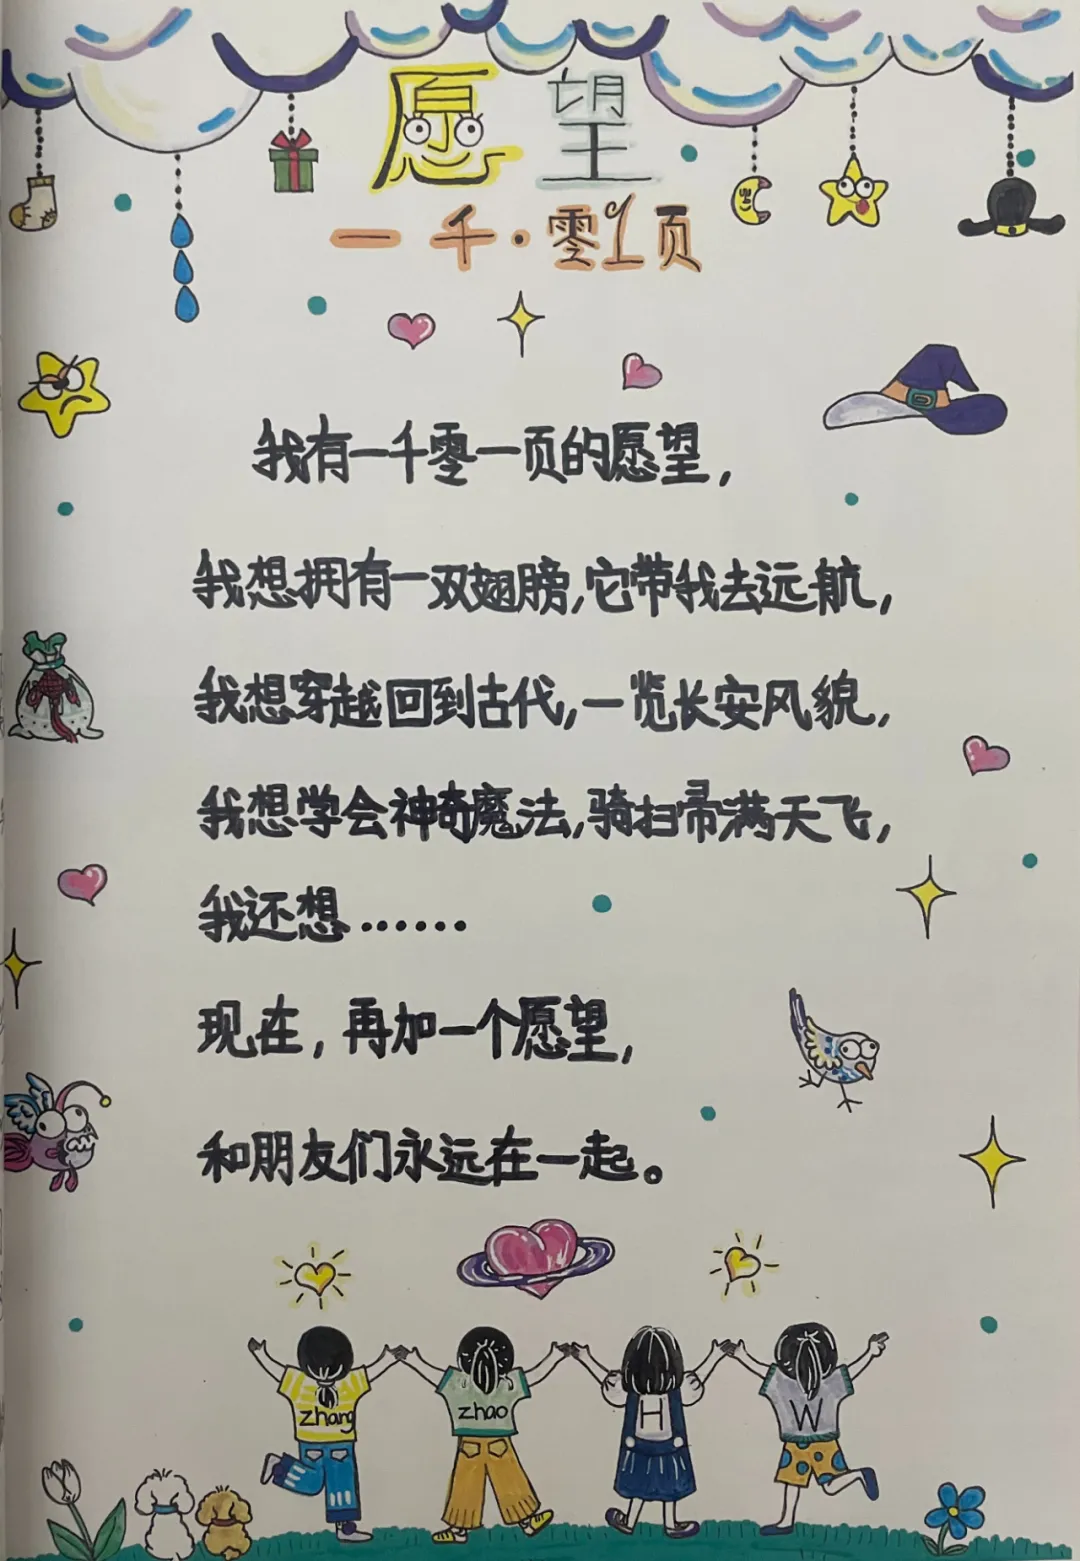 愿望
一千·零1页
我有一千零一页的愿望，
我想拥有一双翅膀，它带我去远航，
我想穿越回到古代，一览长安风貌，
我想学会神奇魔法，骑扫帚满天飞，
我还想……
现在，再加一个愿望，
和朋友们永远在一起。
zhang zhao H W